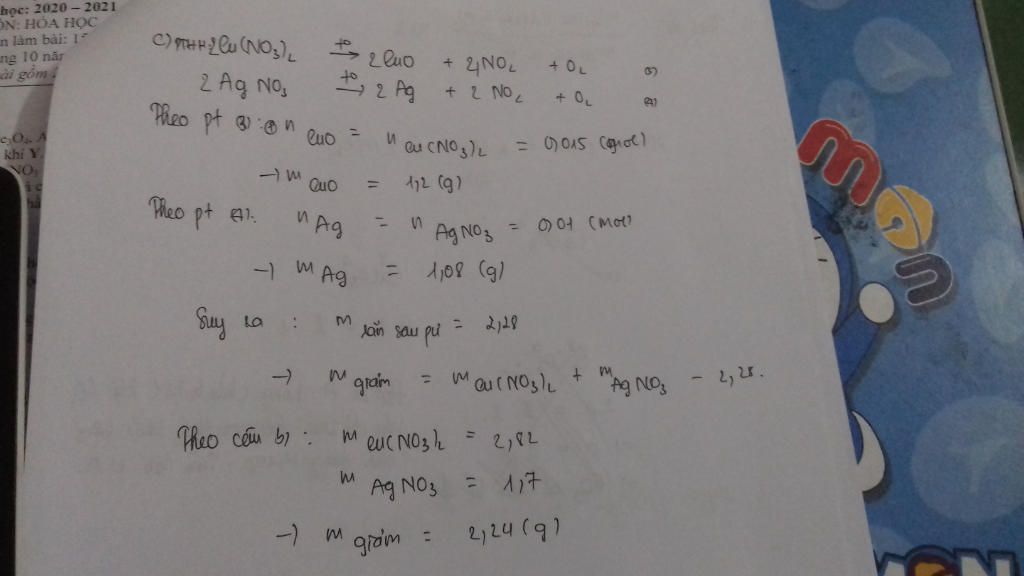 học: 2020 – 2021
ÔN: HÓA HỌC
n làm bài: 15
ng 10 năm
ài gồm
c) PTHH 2Cu(NO3)2 t° → 2CuO + 4NO2 + O2 (3)
2AgNO3 t° → 2Ag + 2NO2 + O2 (4)
Theo pt (3): n CuO = n Cu(NO3)2 = 0,015 (mol)
→ m CuO = 1,2 (g)
Theo pt (4): n Ag = n AgNO3 = 0,01 (mol)
→ m Ag = 1,08 (g)
Suy ra : m rắn sau pư = 2,28
→ m giảm = m Cu(NO3)2 + m AgNO3 - 2,28.
Theo câu b) : m Cu(NO3)2 = 2,82
m AgNO3 = 1,7
→ m giảm = 2,24 (g)
khí Y.
mon
MON